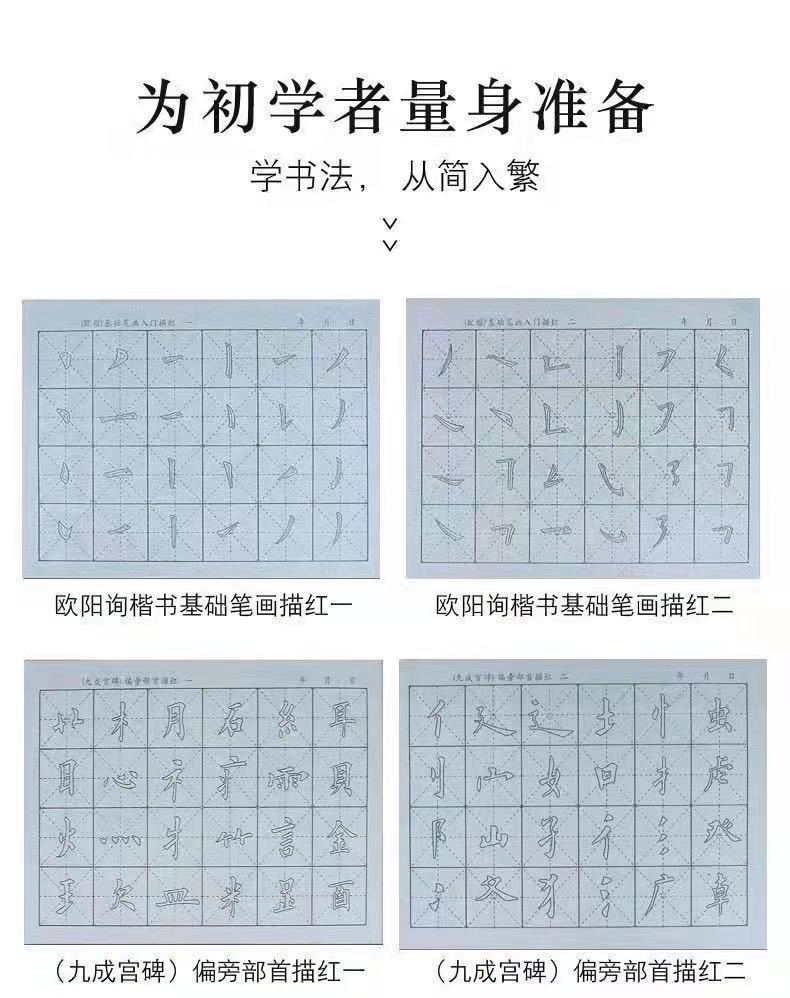 为初学者量身准备
学书法， 从简入繁
(欧楷)基础笔画入门描红 一 年 月 日
(欧楷)基础笔画入门描红 二 年 月 日
欧阳询楷书基础笔画描红一
欧阳询楷书基础笔画描红二
(九成宫碑)偏旁部首描红 一 年 月 日
艹 木 月 石 糹 耳
目 心 礻 疒 雨 貝
火 灬 牜 ⺮ 言 金
王 欠 皿 米 𧾷 酉
(九成宫碑)偏旁部首描红 二 年 月 日
亻 廴 辶 土 忄 虫
刂 宀 女 囗 扌 虍
阝 山 子 彳 氵 癶
冫 夂 犭 氵 广
（九成宫碑）偏旁部首描红一
（九成宫碑）偏旁部首描红二